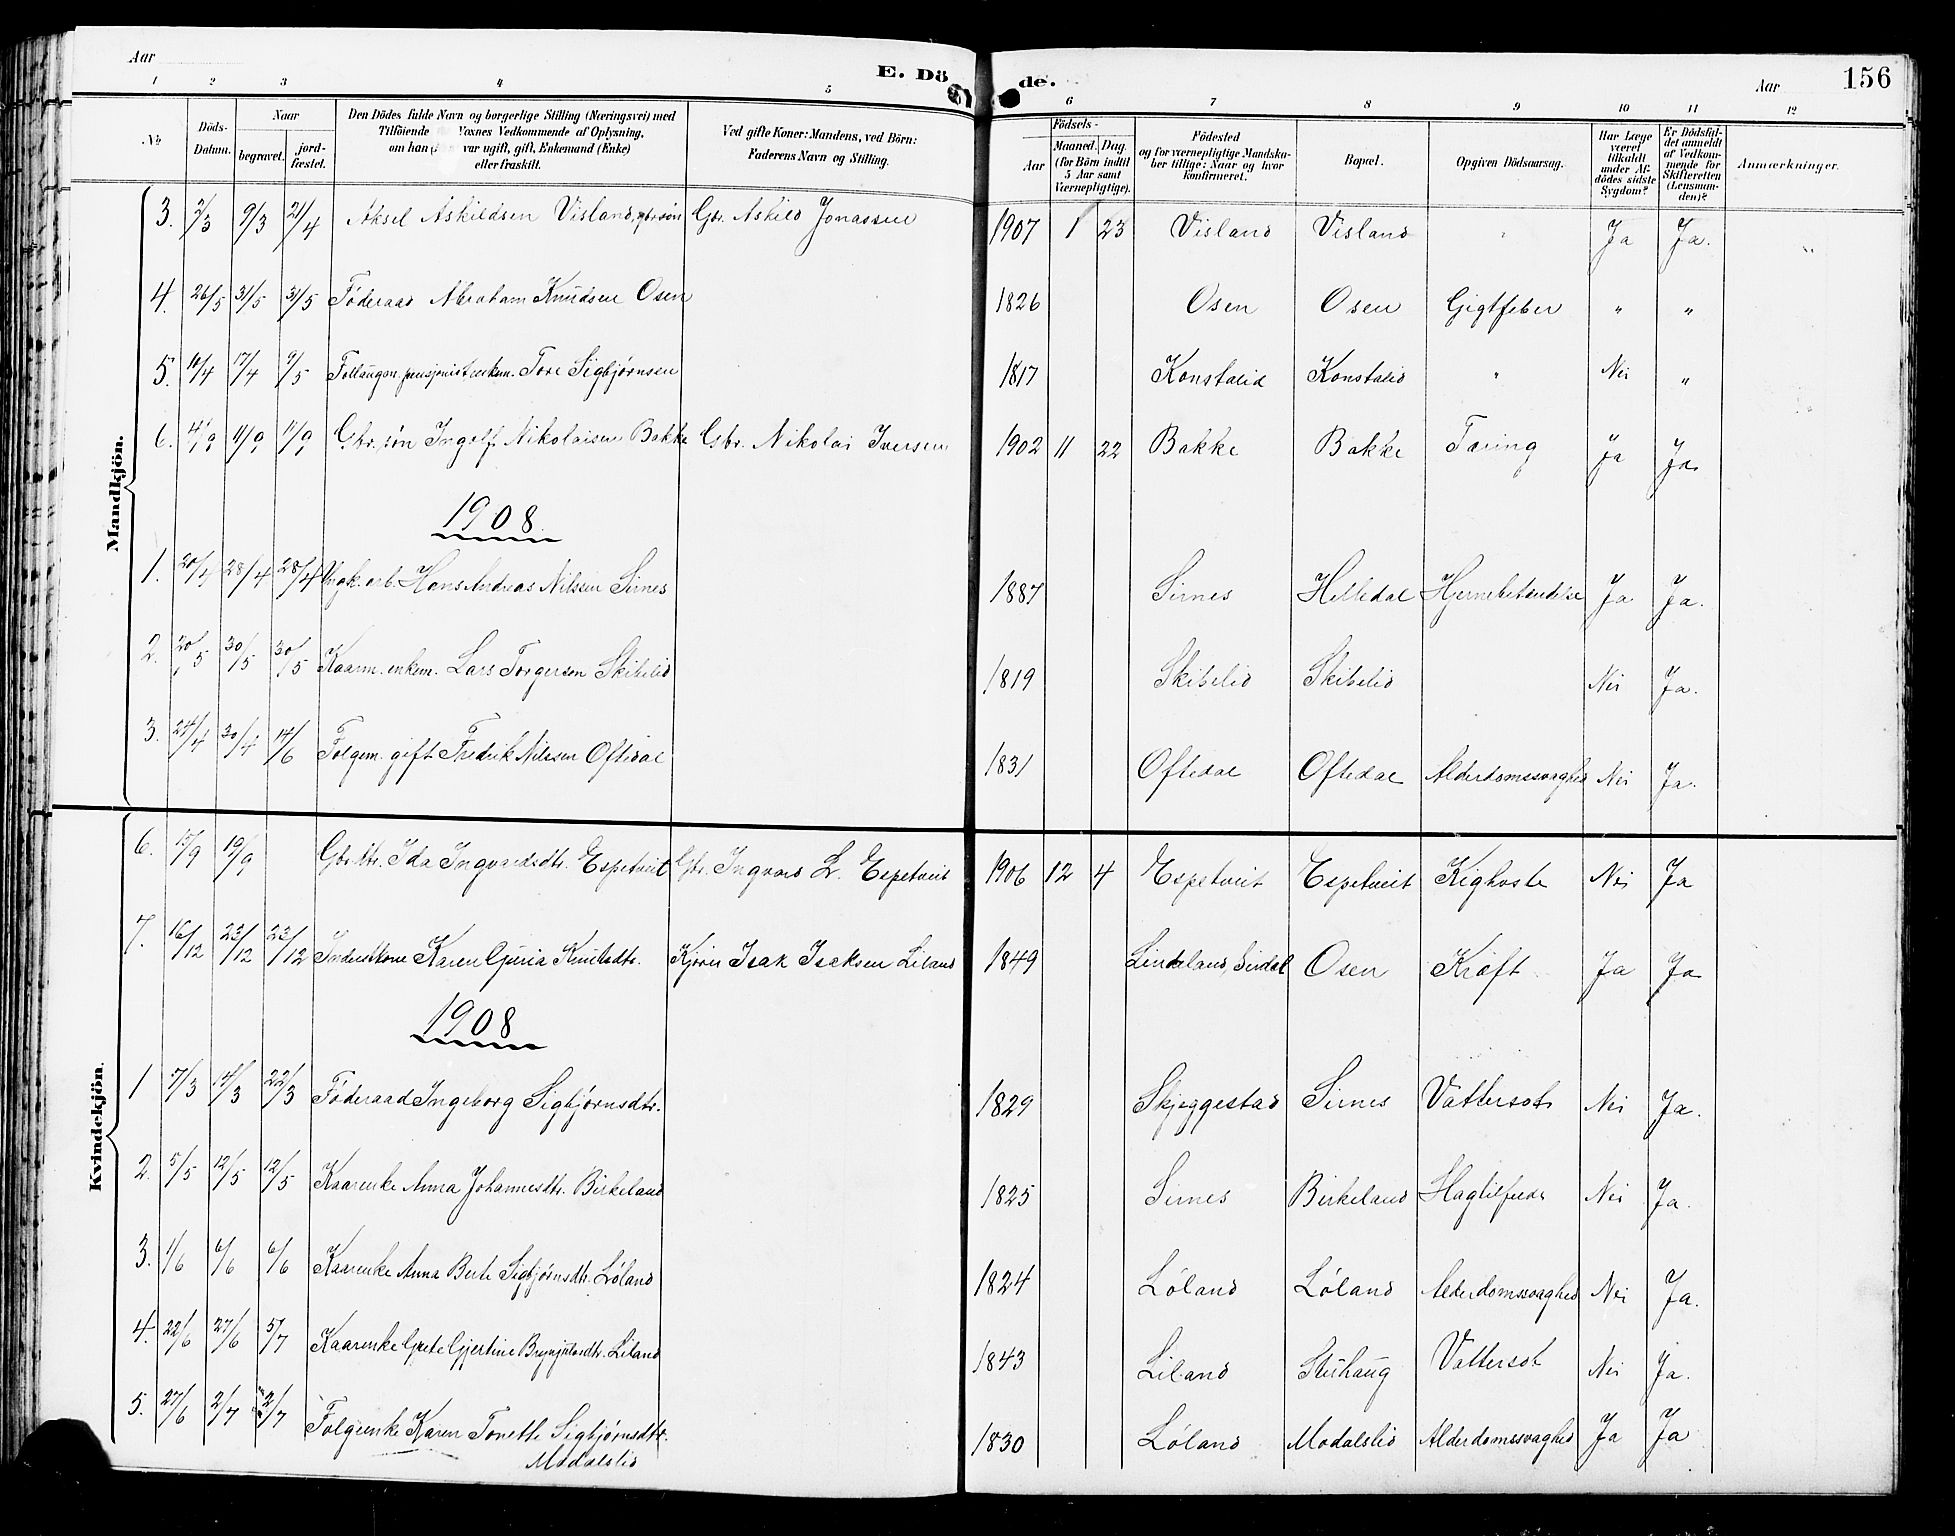 Aar
E. Dö
de.
Aar
156
1 2 3 4 5 6 7 8 9 10 11 12
No
Döds-Datum.
Naar
begravet.
jord-fæstet.
Den Dödes fulde Navn og borgerlige Stilling (Næringsvei) med
Tilföiende Voxnes Vedkommende af Oplysning,
om han var ugift, gift, Enkemand (Enke)
eller fraskilt.
Ved gifte Koner: Mandens, ved Börn:
Faderens Navn og Stilling.
Födsels-
Aar
Maaned. Dag
(for Börn indtil
5 Aar samt
Værnepligtige).
Födested
og for værnepligtige Mandska-
ber tillige: Naar og hvor
konfirmeret.
Bopæl.
Opgiven Dödsaarsag.
Har Læge
været
tilkaldt
under Af-
dödes sidste
Sygdom?
Er Dödsfal-
det anmeldt
af Vedkom-
mende for
Skifteretten
(Lensman-
den)?
Anmærkninger.
Mandkjön.
3. 2/3 9/3 21/4 Aksel Askildsen Visland, gbr.søn Gbr. Askild Jonassen 1907 1 23 Visland Visland " Ja Ja.
4. 26/5 31/5 31/5 Føderaad Abraham Knudsen Osen 1826 Osen Osen Gigtfeber " "
5. 10/4 17/4 9/5 pensjonist enkem. Tore Sigbjørnsen 1817 Konstalid Konstalid " Nei "
6. 4/9 11/9 11/9 Gbr. søn Ingolf Nikolaisen Bakke Gbr. Nikolai Iversen 1902 11 22 Bakke Bakke Tæring Ja Ja
1908.
1. 20/4 28/4 28/4 Hans Andreas Nilssen Sirnes 1887 Sirnes Helledal Hjernebetændelse Ja Ja.
2. 20/5 30/5 30/5 Kaarm. enkem. Lars Torgersen Skibelid 1819 Skibelid Skibelid Nei Ja.
3. 24/4 30/4 14/6 Folgem. gift Fredrik Nilssen Oftedal 1831 Oftedal Oftedal Alderdomssvaghed Nei Ja.
Kvindekjön.
6. 15/9 19/9 Gbr.dtr. Ida Ingvardsdtr. Espetveit Gbr. Ingvard L. Espetveit 1906 12 4 Espetveit Espetveit Kighoste Nei Ja
7. 16/12 23/12 23/12 Inderstkone Karen Guria Knutsdtr. Isak Isaksen Liland 1849 Lindeland, Sirdal Osen Kræft Ja Ja
1908
1 7/3 14/3 22/3 Føderaad Ingeborg Sigbjørnsdtr. 1829 Skjeggestad Sirnes Vattersot Nei Ja.
2. 5/5 12/5 12/5 Kaarenke Anna Johannesdtr. Birkeland 1825 Sirnes Birkeland Nei Ja.
3. 1/6 6/6 6/6 Kaarenke Anna Berte Sigbjørnsdtr. Løland 1824 Løland Løland Alderdomssvaghed Nei Ja.
4. 22/6 27/6 5/7 Kaarenke Grete Gjertine Brynjulvsdtr. Liland 1843 Liland Stuhaug Vattersot Nei Ja.
5. 27/6 2/7 2/7 Folgeenke Karen Tonette Sigbjørnsdtr. 1830 Løland Modalslid Alderdomssvaghed Ja Ja
Modalslid